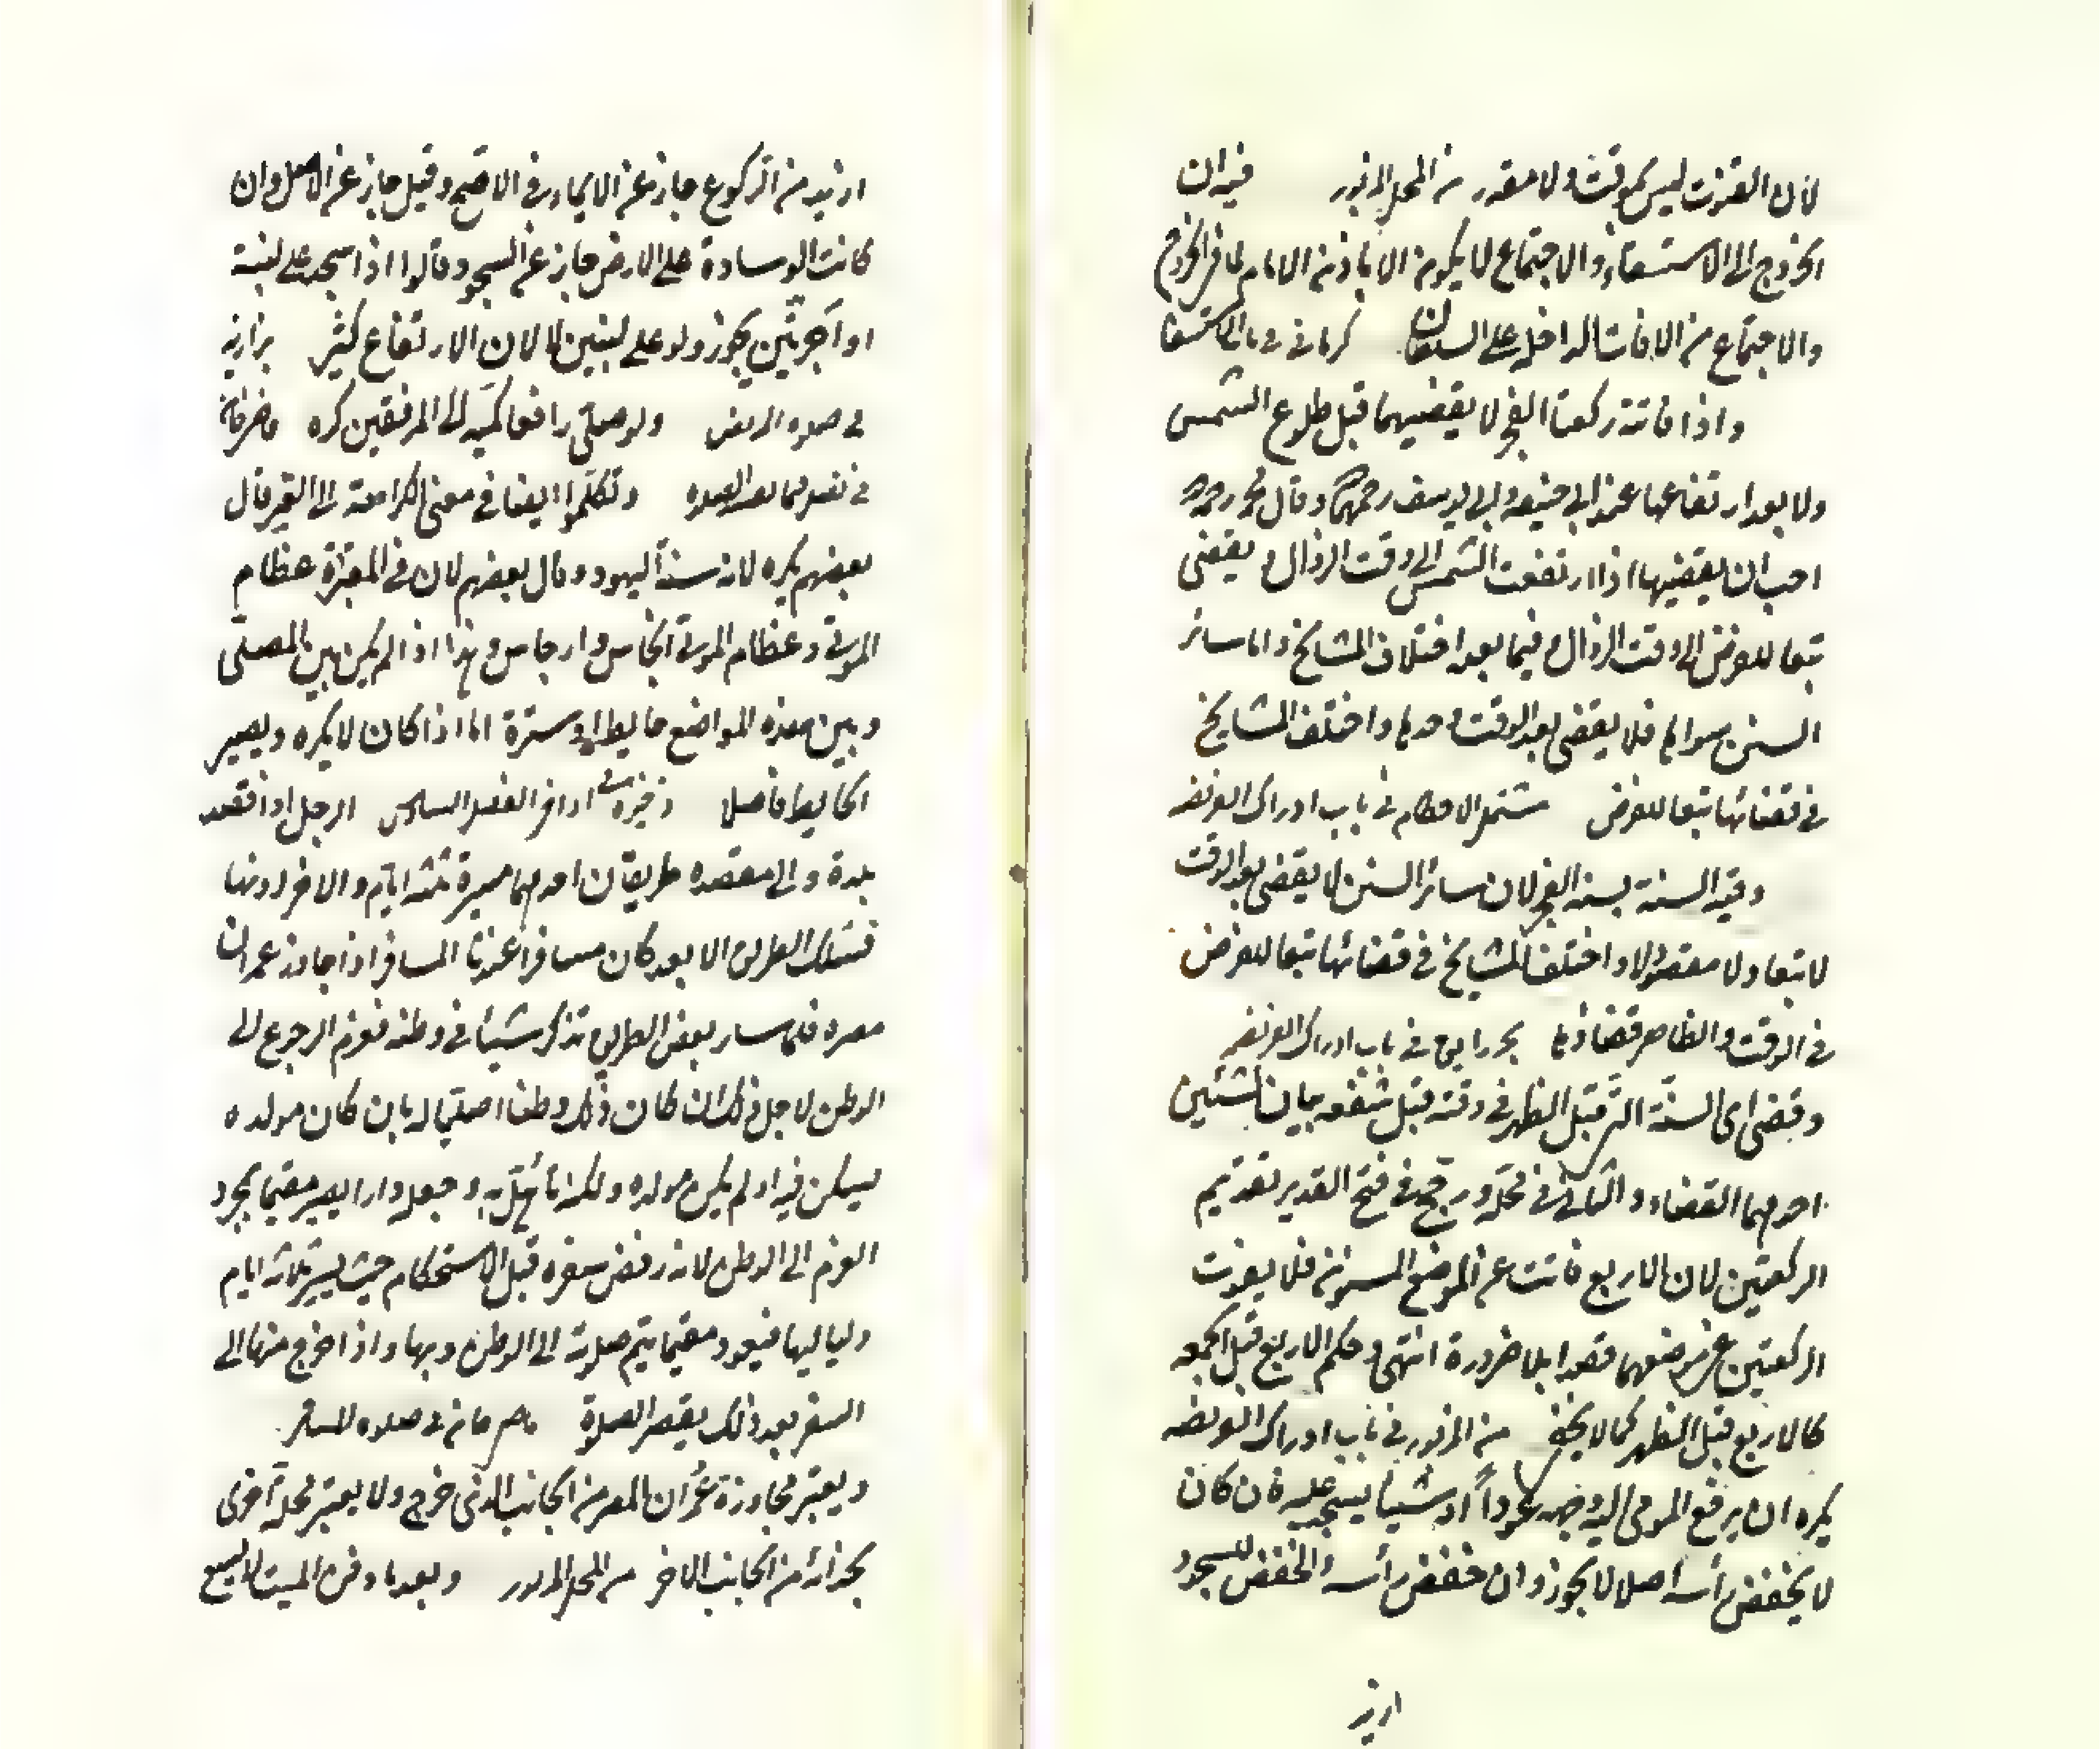 لان القنوت ليس بموقت ولا مقدر من المحل المزبور فيه ان
الخروج الى الاستسقاء والاجتماع لا يكون الا باذن الامام لما فى الخروج
والاجتماع من الافات الداخلة على السلطان كرمانى فى باب الاستسقا
واذا فاتته ركعتا الفجر لا يقضيهما قبل طلوع الشمس
ولا بعد ارتفاعها عند ابى حنيفه وابى يوسف رحمهما وقال محمد رحمه
احب ان يقضيها اذا ارتفعت الشمس الى وقت الزوال ويقضى
تبعا للفرض الى وقت الزوال وفيما بعد اختلاف المشايخ واما سائر
السنن سواها فلا يقضى بعد الوقت وحدها واختلف المشايخ
فى قضائها تبعا للفرض مشتمل الاحكام فى باب ادراك الفريضه
وقيد السنة بسنة الفجر لان سائر السنن لا يقضى بعد الوقت
لا تبعا ولا مقصودا واختلف المشايخ فى قضائها تبعا للفرض
فى الوقت والظاهر قضاؤها بحر رايق فى باب ادراك الفريضه
وقضى اى السنة التى قبل الظهر فى وقته قبل شفعه بيان لشيئين
احدهما القضاء والثانى فى محله ورجح فى فتح القدير تقديم
الركعتين لان الاربع فاتت عن الموضع المسنون فلا يفوت
الركعتين عن موضعهما قصدا بلا ضرورة انتهى وحكم الاربع قبل الجمعه
كالاربع قبل الظهر كما لا يخفى من المزبور فى باب ادراك الفريضه
يكره ان يرفع المومى اليه وجهه عودا او شيئا يسجد عليه فان كان
لا يخفض رأسه اصلا لا يجوز وان خفض رأسه واخفض للسجود
ازيد
ازيد من الركوع جاز عن الايماء فى الاصح وقيل جاز عن الاصل وان
كانت الوسادة على الارض جاز عن السجود وقالوا اذا سجد على لبنة
او آجرتين يجوز ولو على لبنتين لا لان الارتفاع كثير بزازيه
فى صلوة المريض ولو صلى رافعا كميه الى المرفقين كره قاضيخان
فى فصل فيما يفسد الصلوة وتكلموا ايضا فى معنى الكراهة الى القبر قال
بعضهم يكره لانه سنة اليهود وقال بعضهم لان فى المقبرة عظام
الموتى وعظام الموتى انجاس وارجاس وهذا اذا لم يكن بين المصلى
وبين هذه المواضع حايط او سترة اما اذا كان لا يكره ويصير
الحايط فاصلا ذخيره فى اواخر الفصل السادس الرجل اذا قصد
بلدة والى مقصده طريقان احدهما مسيرة ثلثة ايام والاخر دونها
فسلك الطريق الابعد كان مسافرا عندنا المسافر اذا جاوز عمران
مصره فلما سار بعض الطريق تذكر شيئا فى وطنه فعزم الرجوع الى
الوطن لاجل ذلك ان كان ذلك وطنا اصليا له بان كان مولده
يسكن فيه او لم يكن مولده ولكنه تأهل به وجعله دارا يصير مقيما بمجرد
العزم الى الوطن لانه رفض سفره قبل الاستحكام حيث يسير ثلاثة ايام
ولياليها فيعود مقيما يتم صلوته الى الوطن وبها واذا خرج منها الى
السفر بعد ذلك يقصر الصلوة قاضيخان فى صلوة المسافر
ويعتبر مجاوزة عمران المصر من الجانب الذى خرج ولا يعتبر محلة اخرى
بحذائه من الجانب الاخر من المحل المزبور وبعد ما دفن الميت لا يسع